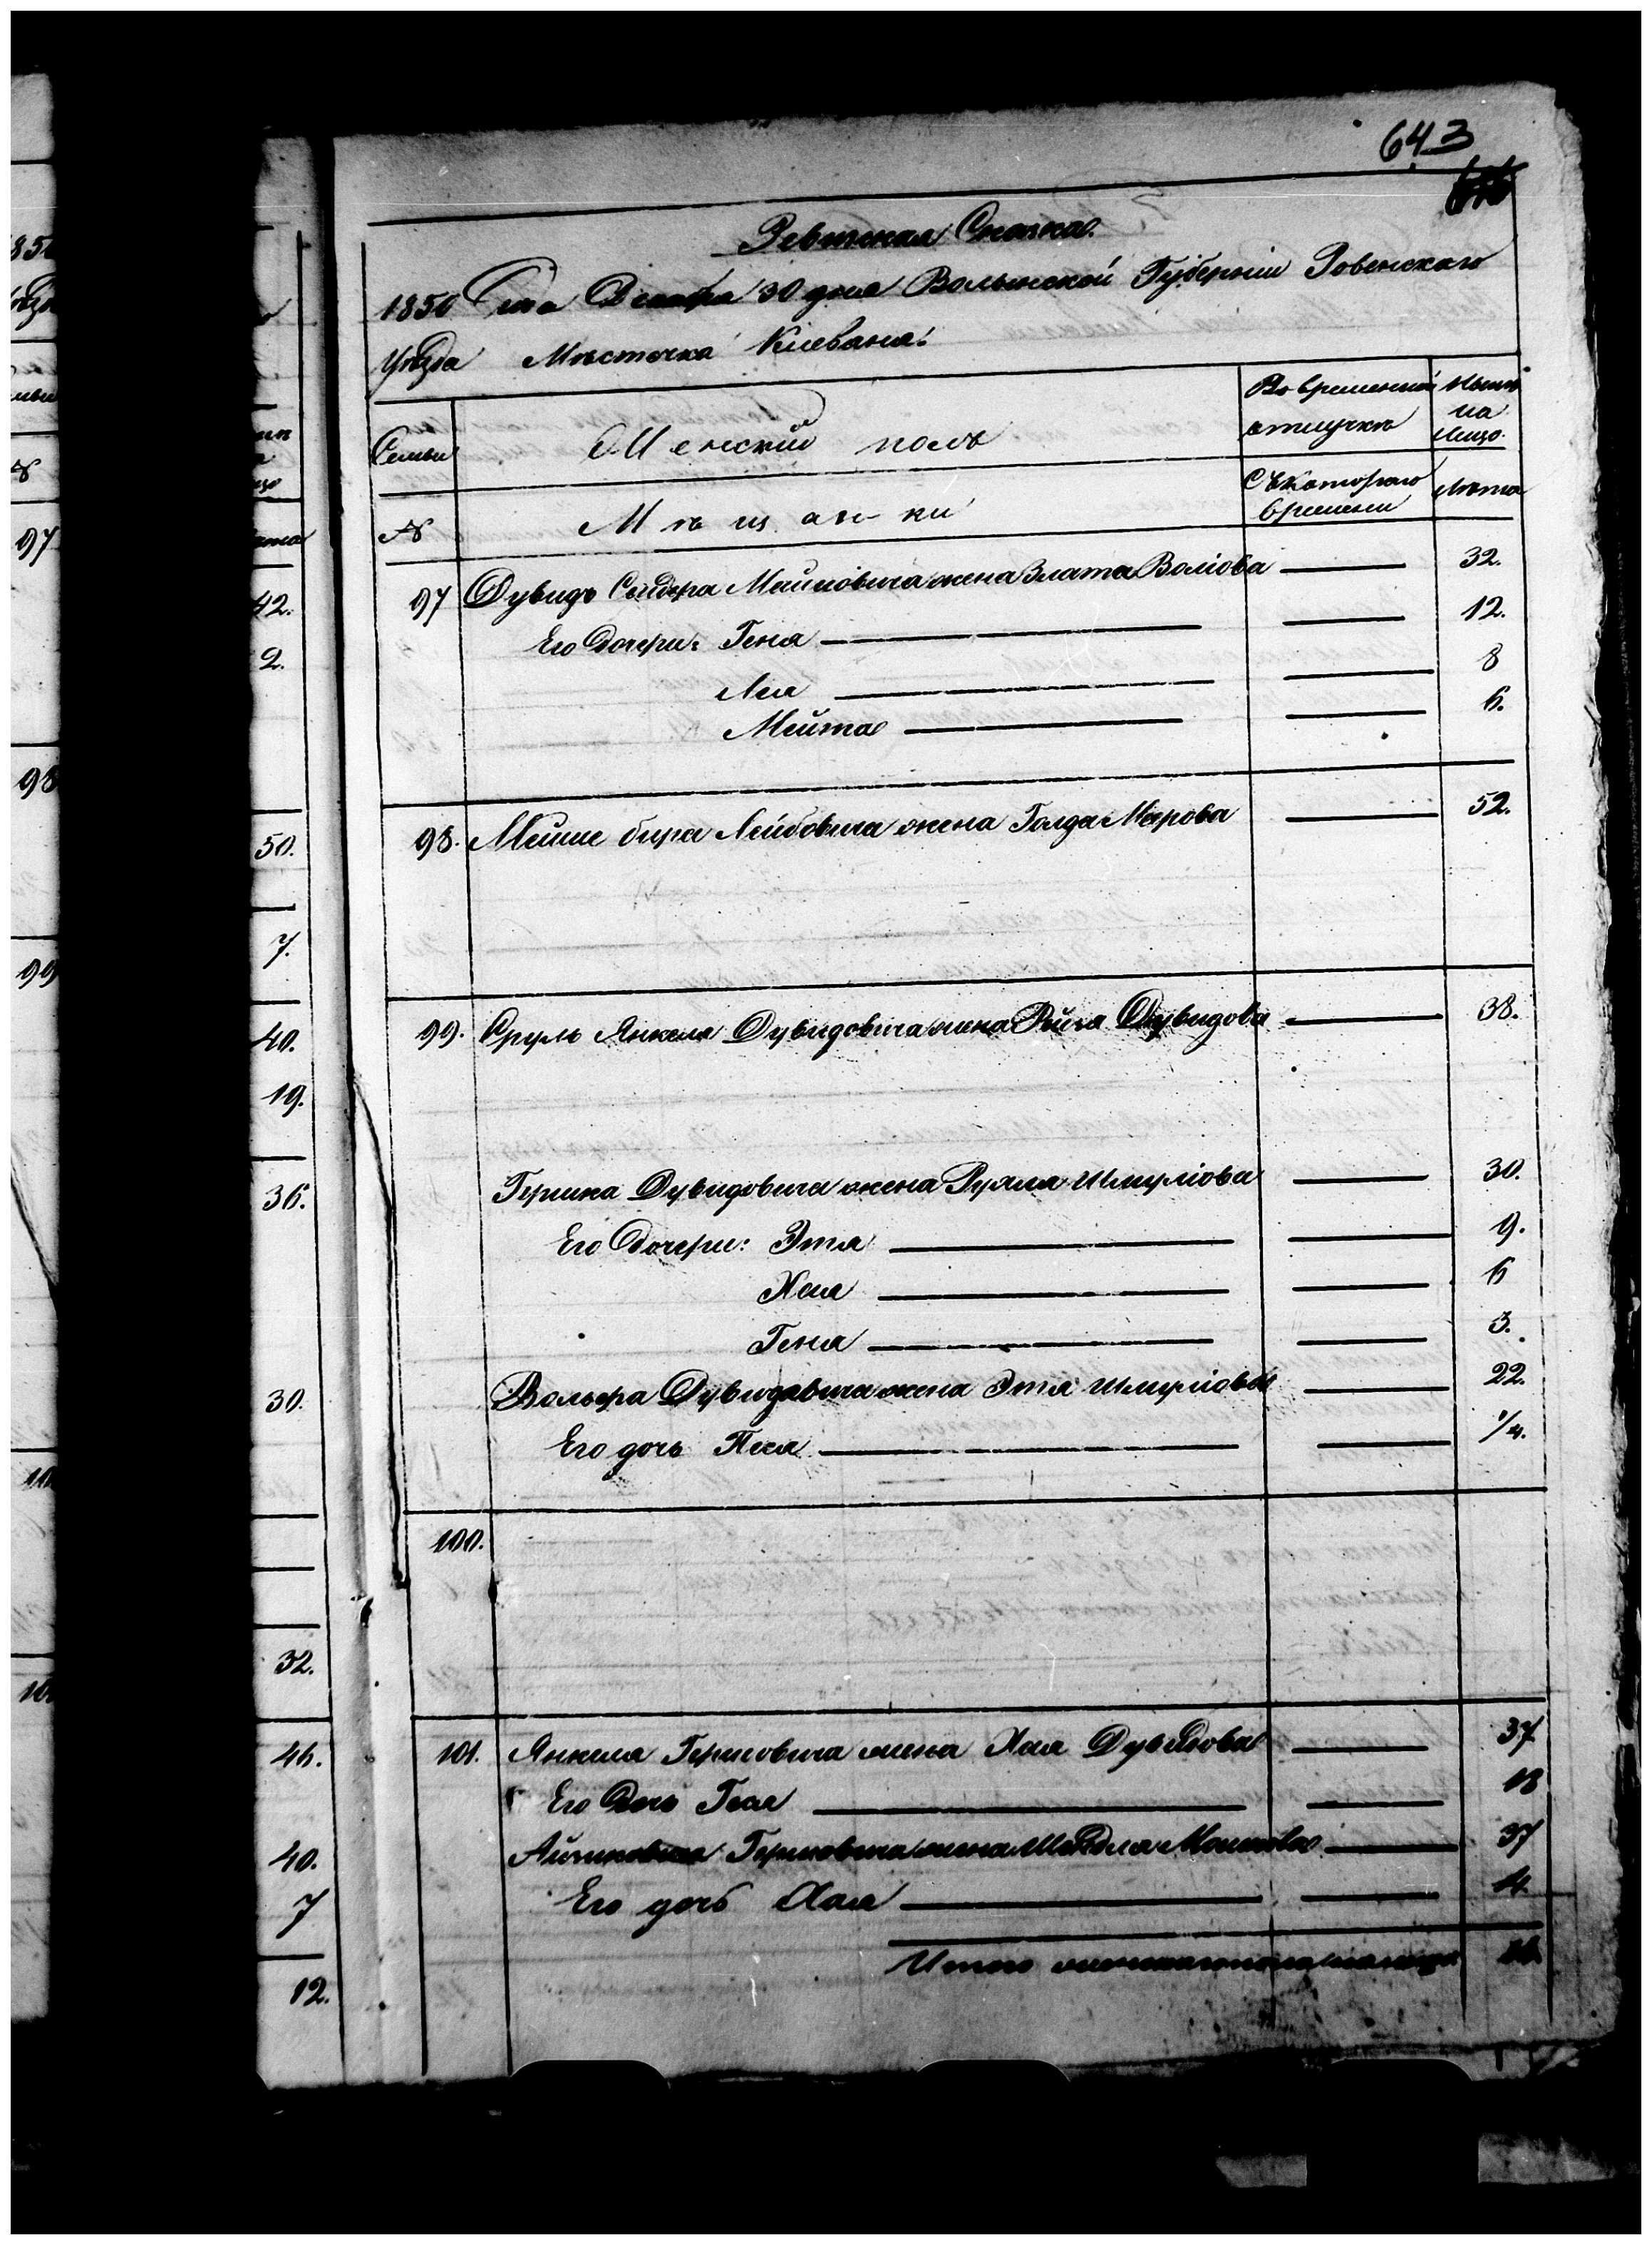 643
Ревизская Сказка.
1850 Года Декабря 30 дня Волынской Губерніи Ровенскаго
Уѣзда Мѣстечка Клевана.
Семьи
Женский полъ
Во временной отлучкѣ
Нынѣ на лицо.
№
Мѣщанки
Съ котораго времени
Лѣта
97 Дувидъ Сендера Мошковича жена Злата Волѣова 32.
Его Дочери: Геня 12.
Лея 8
Мейта 6.
98. Мошие бира Лейбовича жена Голда Мерова 52.
99. Сруль Янкеля Дувидовича жена Ройза Дувидова 38.
Гершка Дувидовича жена Рухля Шмуліова 30.
Его Дочери: Этя 9.
Хая 6
Геня 3.
Вольфа Дувидовича жена Этя Шмуліова 22.
Его дочь Песя 1/4.
100.
101. Янкеля Гершковича жена Хая Дувидова 37
Его Дочь Гися 18
Гершковича жена Шейдля Мошкова 37
Его дочь Хая 4
Итого женскаго пола на лицо
97
98
99
42.
2.
50.
7.
40.
19.
36.
30.
32.
46.
40.
7
12.